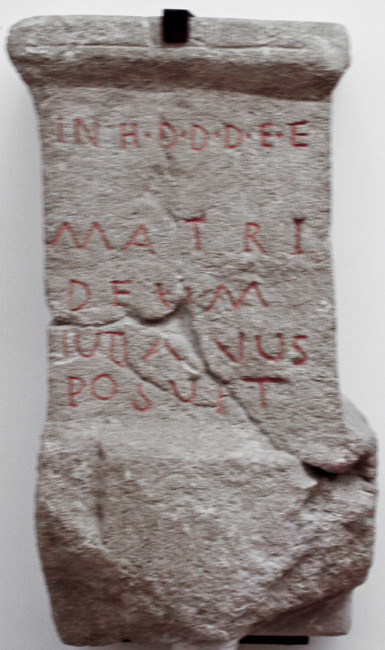 IN H·D·D·D·E·E
MATRI
DEUM
POSUIT